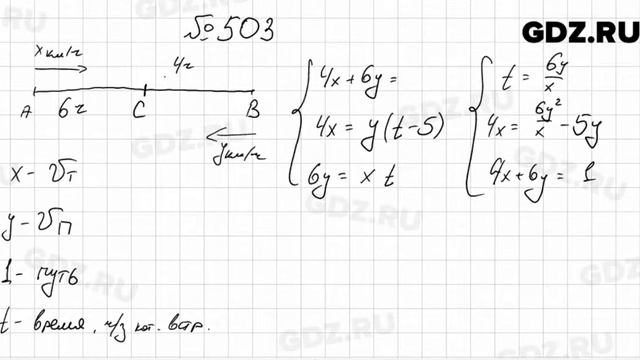 №503
GDZ.RU
x км/ч
4ч
A 6ч C B
y км/ч
x - υт
y - υп
1 - путь
t - время, ч/з кот. встр.
4x + 6y =
4x = y(t - 5)
6y = x t
t = 6y/x
4x = 6y²/x - 5y
4x + 6y = 1
GDZ.RU
GDZ.RU
GDZ.RU
GDZ.RU
GDZ.RU
GDZ.RU